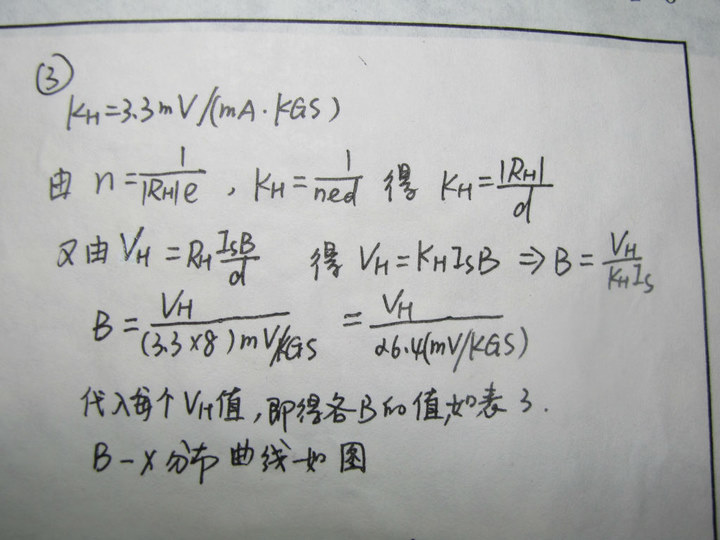 ③
K_H=3.3mV/(mA·KGS)
由 n=1/(|R_H|e) , K_H=1/(ned) 得 K_H=|R_H|/d
又由 V_H=R_H I_sB/d 得 V_H=K_H I_s B ⇒ B=V_H/(K_H I_s)
B=V_H/((3.3×8)mV/KGS) =V_H/(26.4(mV/KGS))
代入每个V_H值,即得各B的值,如表3.
B-X分布曲线如图